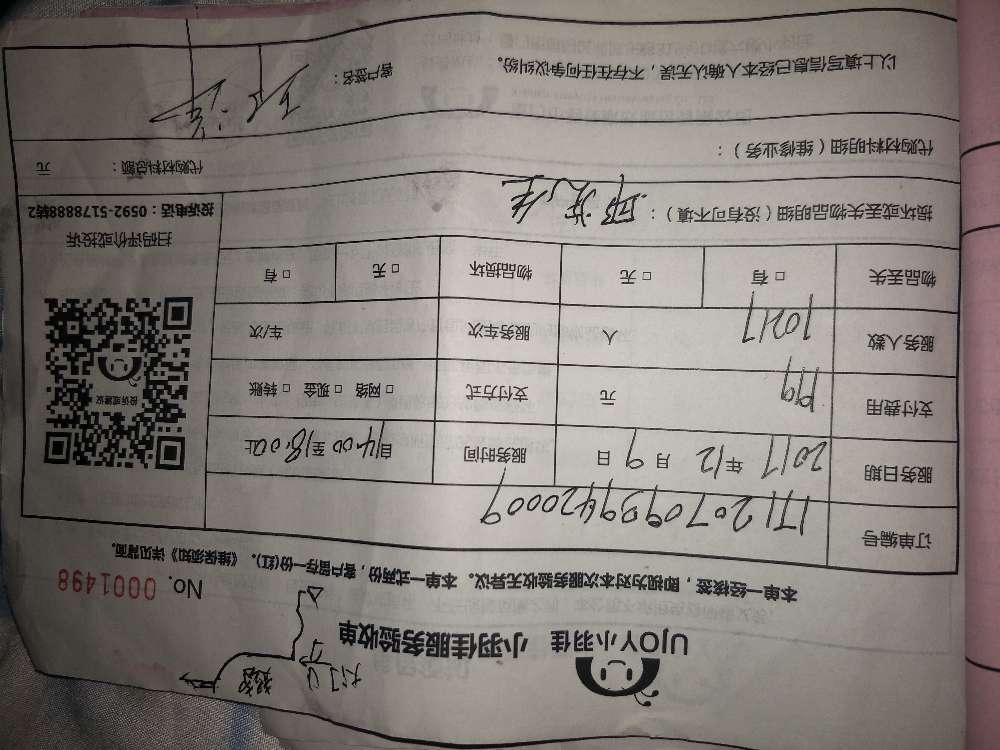 UJOY小羽佳 小羽佳服务验收单
No. 0001498
本单一经核签，即视为对本次服务验收无异议。本单一式两份，客户留存一份(红)。《维保须知》详见背面。
订单编号
服务日期 2017 年 12 月 9 日 服务时间 自14:00至18:00止
支付费用 199 元 支付方式 □网络 □现金 □转账
服务人数 人 服务车次 车/次
物品丢失 □有 □无 物品损坏 □无 □有
投诉或建议
扫码评价或投诉
投诉电话：0592-5178888转2
损坏或丢失物品明细（没有可不填）：
代购材料明细（维修业务）：
代购材料总额： 元
以上填写信息已经本人确认无误，不存在任何争议纠纷。 客户签名：